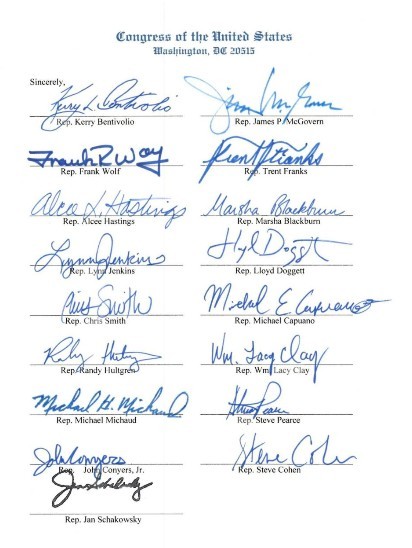 Congress of the United States
Washington, DC 20515
Sincerely,
Kerry L. Bentivolio
Rep. Kerry Bentivolio
Jim McGovern
Rep. James P. McGovern
Frank R Wolf
Rep. Frank Wolf
Trent Franks
Rep. Trent Franks
Alcee L. Hastings
Rep. Alcee Hastings
Marsha Blackburn
Rep. Marsha Blackburn
Lynn Jenkins
Rep. Lynn Jenkins
Lloyd Doggett
Rep. Lloyd Doggett
Chris Smith
Rep. Chris Smith
Michael E Capuano
Rep. Michael Capuano
Randy Hultgren
Rep. Randy Hultgren
Wm. Lacy Clay
Rep. Wm. Lacy Clay
Michael H. Michaud
Rep. Michael Michaud
Steve Pearce
Rep. Steve Pearce
John Conyers
Rep. John Conyers, Jr.
Steve Cohen
Rep. Steve Cohen
Jan Schakowsky
Rep. Jan Schakowsky